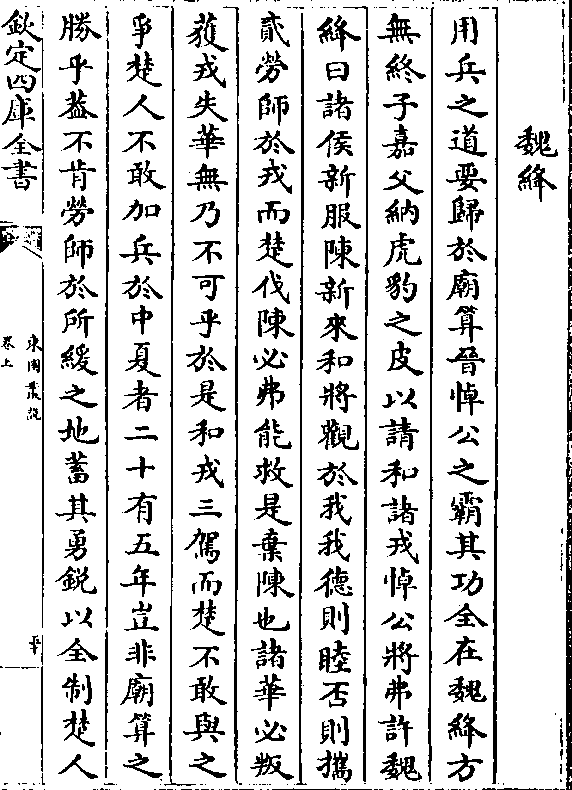 魏絳
用兵之道要歸於廟算晉悼公之霸其功全在魏絳方
無終子嘉父納虎豹之皮以請和諸戎悼公將弗許魏
絳曰諸侯新服陳新來和將觀於我我德則睦否則攜
貳勞師於戎而楚伐陳必弗能救是棄陳也諸華必叛
獲戎失華無乃不可乎於是和戎三駕而楚不敢與之
爭楚人不敢加兵於中夏者二十有五年豈非廟算之
勝乎葢不肯勞師於所緩之地蓄其勇銳以全制楚人
欽定四庫全書
東周叢說
卷上